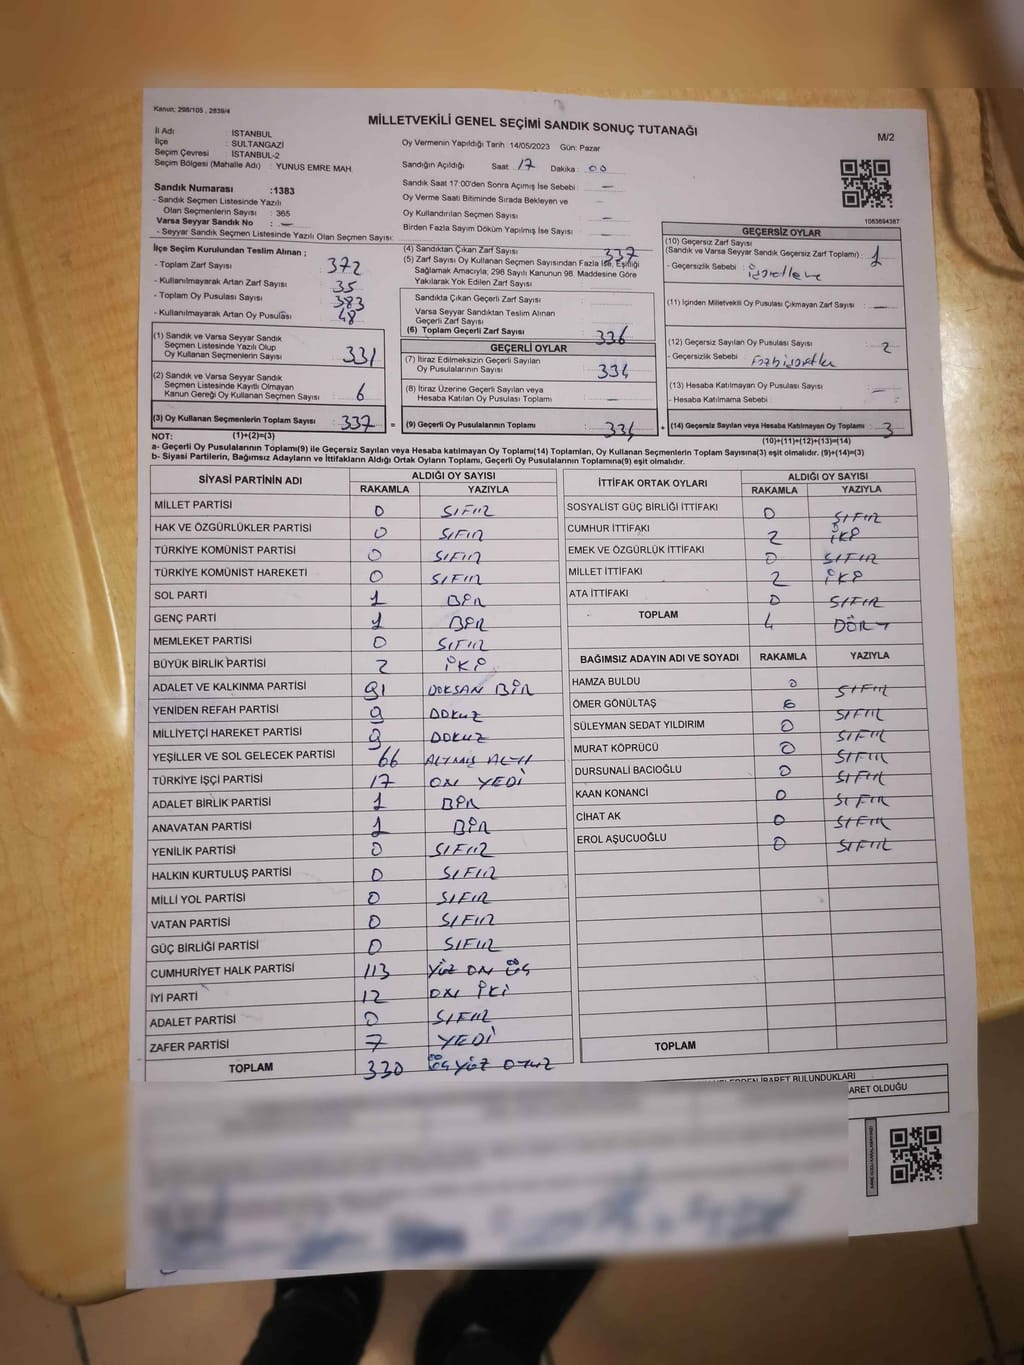 Kanun: 298/105 , 2839/4
MİLLETVEKİLİ GENEL SEÇİMİ SANDIK SONUÇ TUTANAĞI
M/2
İl Adı : İSTANBUL
İlçe : SULTANGAZİ
Seçim Çevresi : İSTANBUL-2
Seçim Bölgesi (Mahalle Adı) : YUNUS EMRE MAH.
Sandık Numarası :1383
- Sandık Seçmen Listesinde Yazılı
Olan Seçmenlerin Sayısı : 365
Varsa Seyyar Sandık No : —
- Seyyar Sandık Seçmen Listesinde Yazılı Olan Seçmen Sayısı:
Oy Vermenin Yapıldığı Tarih :14/05/2023 Gün: Pazar
Sandığın Açıldığı Saat : 17 Dakika : 00
Sandık Saat 17:00'den Sonra Açımış İse Sebebi : —
Oy Verme Saati Bitiminde Sırada Bekleyen ve
Oy Kullandırılan Seçmen Sayısı : —
Birden Fazla Sayım Döküm Yapılmış İse Sayısı : —
1083694387
İlçe Seçim Kurulundan Teslim Alınan ;
- Toplam Zarf Sayısı : 372
- Kullanılmayarak Artan Zarf Sayısı : 35
- Toplam Oy Pusulası Sayısı : 383
- Kullanılmayarak Artan Oy Pusulası : 48
(1) Sandık ve Varsa Seyyar Sandık
Seçmen Listesinde Yazılı Olup
Oy Kullanan Seçmenlerin Sayısı : 331
(2) Sandık ve Varsa Seyyar Sandık
Seçmen Listesinde Kayıtlı Olmayan
Kanun Gereği Oy Kullanan Seçmen Sayısı : 6
(3) Oy Kullanan Seçmenlerin Toplam Sayısı : 337
(1)+(2)=(3)
(4) Sandıktan Çıkan Zarf Sayısı : 337
(5) Zarf Sayısı Oy Kullanan Seçmen Sayısından Fazla İse, Eşitliği
Sağlamak Amacıyla; 298 Sayılı Kanunun 98. Maddesine Göre
Yakılarak Yok Edilen Zarf Sayısı :
Sandıkta Çıkan Geçerli Zarf Sayısı :
Varsa Seyyar Sandıktan Teslim Alınan
Geçerli Zarf Sayısı :
(6) Toplam Geçerli Zarf Sayısı : 336
GEÇERLİ OYLAR
(7) İtiraz Edilmeksizin Geçerli Sayılan
Oy Pusulalarının Sayısı : 334
(8) İtiraz Üzerine Geçerli Sayılan veya
Hesaba Katılan Oy Pusulası Toplamı : —
= (9) Geçerli Oy Pusulalarının Toplamı : 334
GEÇERSİZ OYLAR
(10) Geçersiz Zarf Sayısı
(Sandık ve Varsa Seyyar Sandık Geçersiz Zarf Toplamı) : 1
- Geçersizlik Sebebi : işaretleme
(11) İçinden Milletvekili Oy Pusulası Çıkmayan Zarf Sayısı : —
(12) Geçersiz Sayılan Oy Pusulası Sayısı : 2
- Geçersizlik Sebebi :
(13) Hesaba Katılmayan Oy Pusulası Sayısı : —
- Hesaba Katılmama Sebebi :
+ (14) Geçersiz Sayılan veya Hesaba Katılmayan Oy Toplamı : 3
(10)+(11)+(12)+(13)=(14)
NOT:
a- Geçerli Oy Pusulalarının Toplamı(9) ile Geçersiz Sayılan veya Hesaba katılmayan Oy Toplamı(14) Toplamları, Oy Kullanan Seçmenlerin Toplam Sayısına(3) eşit olmalıdır. (9)+(14)=(3)
b- Siyasi Partilerin, Bağımsız Adayların ve İttifakların Aldığı Ortak Oyların Toplamı, Geçerli Oy Pusulalarının Toplamına(9) eşit olmalıdır.
SİYASİ PARTİNİN ADI ALDIĞI OY SAYISI
RAKAMLA YAZIYLA
MİLLET PARTİSİ 0 SIFIR
HAK VE ÖZGÜRLÜKLER PARTİSİ 0 SIFIR
TÜRKİYE KOMÜNİST PARTİSİ 0 SIFIR
TÜRKİYE KOMÜNİST HAREKETİ 0 SIFIR
SOL PARTİ 1 BİR
GENÇ PARTİ 1 BİR
MEMLEKET PARTİSİ 0 SIFIR
BÜYÜK BİRLİK PARTİSİ 2 İKİ
ADALET VE KALKINMA PARTİSİ 91 DOKSAN BİR
YENİDEN REFAH PARTİSİ 9 DOKUZ
MİLLİYETÇİ HAREKET PARTİSİ 9 DOKUZ
YEŞİLLER VE SOL GELECEK PARTİSİ 66 ALTMIŞ ALTI
TÜRKİYE İŞÇİ PARTİSİ 17 ON YEDİ
ADALET BİRLİK PARTİSİ 1 BİR
ANAVATAN PARTİSİ 1 BİR
YENİLİK PARTİSİ 0 SIFIR
HALKIN KURTULUŞ PARTİSİ 0 SIFIR
MİLLİ YOL PARTİSİ 0 SIFIR
VATAN PARTİSİ 0 SIFIR
GÜÇ BİRLİĞİ PARTİSİ 0 SIFIR
CUMHURİYET HALK PARTİSİ 113 YÜZ ON ÜÇ
İYİ PARTİ 12 ON İKİ
ADALET PARTİSİ 0 SIFIR
ZAFER PARTİSİ 7 YEDİ
TOPLAM 330 ÜÇ YÜZ OTUZ
İTTİFAK ORTAK OYLARI ALDIĞI OY SAYISI
RAKAMLA YAZIYLA
SOSYALİST GÜÇ BİRLİĞİ İTTİFAKI 0 SIFIR
CUMHUR İTTİFAKI 2 İKİ
EMEK VE ÖZGÜRLÜK İTTİFAKI 0 SIFIR
MİLLET İTTİFAKI 2 İKİ
ATA İTTİFAKI 0 SIFIR
TOPLAM 4 DÖRT
BAĞIMSIZ ADAYIN ADI VE SOYADI RAKAMLA YAZIYLA
HAMZA BULDU 0 SIFIR
ÖMER GÖNÜLTAŞ 0 SIFIR
SÜLEYMAN SEDAT YILDIRIM 0 SIFIR
MURAT KÖPRÜCÜ 0 SIFIR
DURSUNALİ BACIOĞLU 0 SIFIR
KAAN KONANCİ 0 SIFIR
CİHAT AK 0 SIFIR
EROL AŞUCUOĞLU 0 SIFIR
TOPLAM
İBARET BULUNDUKLARI
ARET OLDUĞU